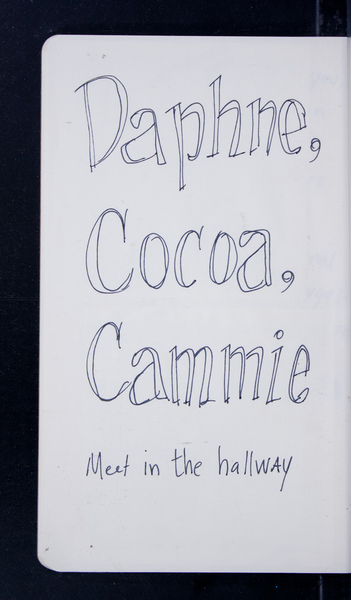 Daphne,
Cocoa,
Cammie
Meet in the hallway